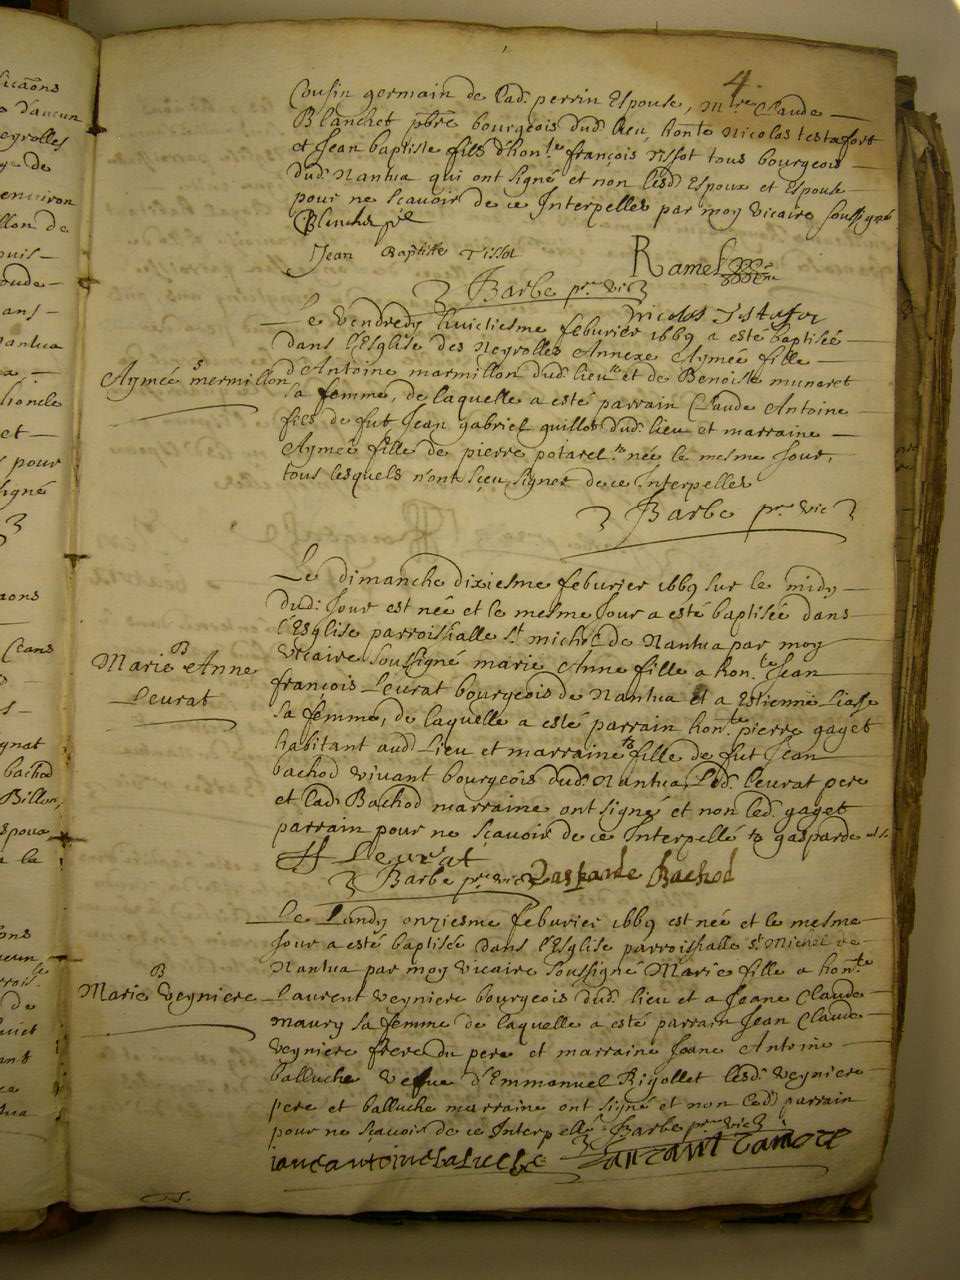 4.
Cousin germain de lad. perrin Espouse, mre Claude
Blanchet pbre bourgeois dud. lieu, honte Nicolas testafort
et Jean baptiste fils d'honble françois tissot tous bourgeois
dud. Nantua qui ont signé et non lesd. Espoux et Espouse
pour ne sçavoir de ce Interpellés par moy vicaire soussigné
Jean Baptiste Tissot
Ramel
Barbe pr. vic
nicolas Testafor
Le vendredy huictiesme feburier 1669 a esté baptisée
dans l'Esglise des Neyrolles Annexe Aymée fille
Aymée mermillon
d'Antoine marmillon dud. lieu et de Benoiste munaret
sa femme, de laquelle a esté parrain Claude Antoine
fils de fut Jean gabriel guillot dud. lieu et marraine
Aymée fille de pierre potarel née le mesme Jour,
tous lesquels n'ont sçeu signer de ce interpellés
Barbe pr. vic
Le dimanche dixiesme feburier 1669 sur le midy
dud. Jour est née et le mesme Jour a esté baptisée dans
l'Esglise parroissialle st michel de Nantua par moy
vicaire soussigné marie Anne fille a honte Jean
B
Marie Anne
Leurat
françois Leurat bourgeois de Nantua et a Estienne Liasse
sa femme, de laquelle a esté parrain honte pierre gaget
habitant aud. Lieu et marraine fille de fut Jean
bachod vivant bourgeois dud. Nantua, Led. leurat pere
et lad. Bachod marraine ont signé et non led. gaget
parrain pour ne sçavoir de ce Interpellé gasparde
Leurat
Barbe pr. vic
Gasparde Bachod
Le Lundy onziesme feburier 1669 est née et le mesme
Jour a esté baptisée dans l'Esglise parroissialle st Michel de
Nantua par moy vicaire soussigné Marie fille a honte
B
Marie Veyniere
laurent veyniere bourgeois dud. lieu et a Jeane Claude
maury sa femme de laquelle a esté parrain Jean Claude
veyniere frere du pere et marraine Jeane Antoine
balluche vefue d'Emmanuel Rigollet lesd. veyniere
pere et balluche marraine ont signé et non led. parrain
pour ne sçavoir de ce Interpellé Barbe pr. vic